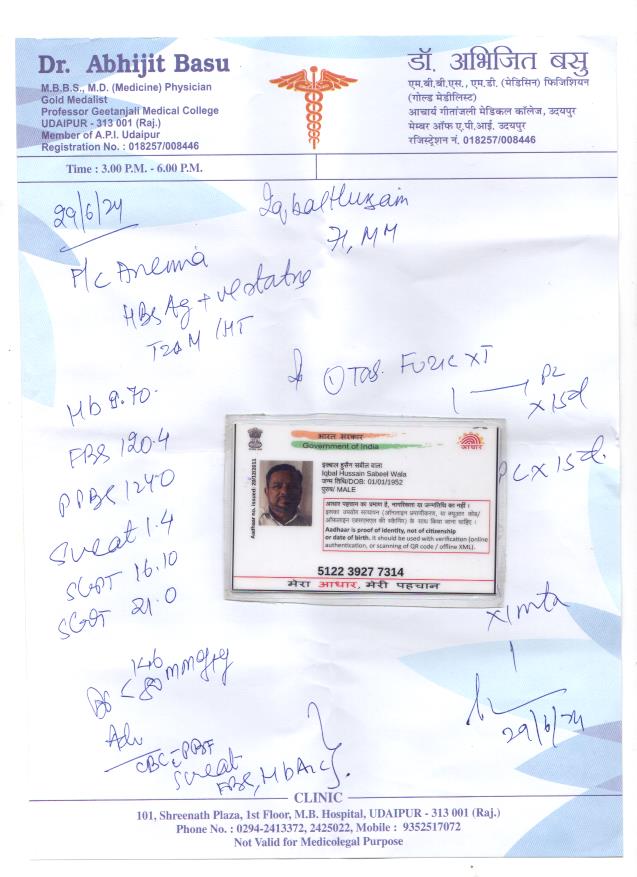 Dr. Abhijit Basu
M.B.B.S., M.D. (Medicine) Physician
Gold Medalist
Professor Geetanjali Medical College
UDAIPUR - 313 001 (Raj.)
Member of A.P.I. Udaipur
Registration No. : 018257/008446
डॉ. अभिजित बसु
एम.बी.बी.एस., एम.डी. (मेडिसिन) फिजिशियन
(गोल्ड मेडीलिस्ट)
आचार्य गीतांजली मेडिकल कॉलेज, उदयपुर
मेम्बर ऑफ ए.पी.आई. उदयपुर
रजिस्ट्रेशन नं. 018257/008446
Time : 3.00 P.M. - 6.00 P.M.
29/6/24
Iqbal Hussain
P/c Anemia
HBsAg +ve status
T2DM /HT
① Tab.
x 15d
Hb 8.70
FBS 120.4
PPBS 124.0
1.4
SGPT 16.10
SGOT 21.0
PC x 15d.
भारत सरकार
Government of India
आधार
Aadhaar no. issued: 28/12/2011
इक़बाल हुसैन सबील वाला
Iqbal Hussain Sabeel Wala
जन्म तिथि/DOB: 01/01/1952
पुरुष/ MALE
आधार पहचान का प्रमाण है, नागरिकता या जन्मतिथि का नहीं ।
इसका उपयोग सत्यापन (ऑनलाइन प्रमाणीकरण, या क्यूआर कोड/
ऑफलाइन एक्सएमएल की स्कैनिंग) के साथ किया जाना चाहिए ।
Aadhaar is proof of identity, not of citizenship
or date of birth. It should be used with verification (online
authentication, or scanning of QR code / offline XML).
5122 3927 7314
मेरा आधार, मेरी पहचान
146
80 mmHg
29/6/24
Adv
CBC PBF
FBS, HbA1c
CLINIC
101, Shreenath Plaza, 1st Floor, M.B. Hospital, UDAIPUR - 313 001 (Raj.)
Phone No. : 0294-2413372, 2425022, Mobile : 9352517072
Not Valid for Medicolegal Purpose